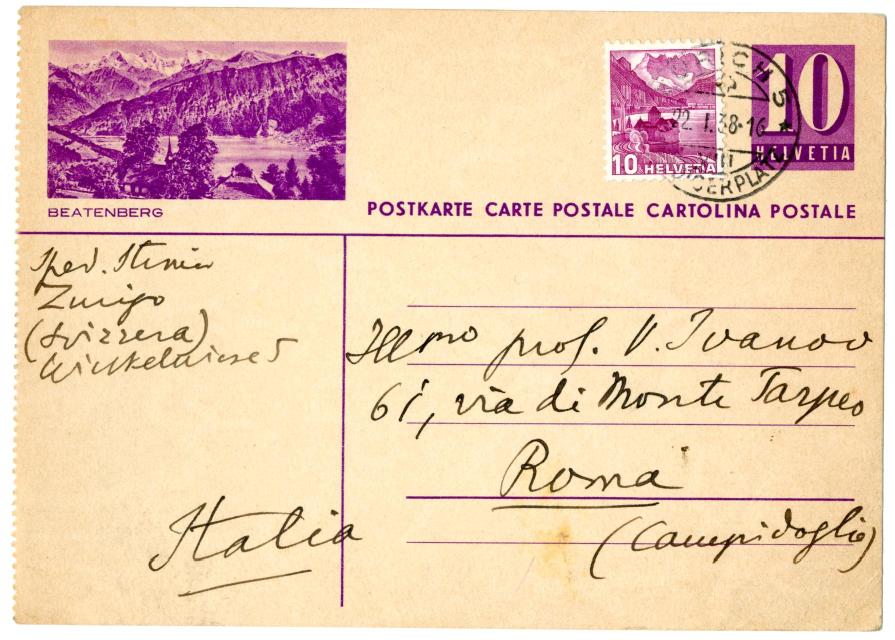 BEATENBERG
10
HELVETIA
RICH 5
22. I. 38-16
VIII
10
HELVETIA
POSTKARTE CARTE POSTALE CARTOLINA POSTALE
Sped. Steiner
Zurigo
(Svizzera)
5
Illmo prof. V. Ivanov
61, via di Monte Tarpeo
Roma
(Campidoglio)
Italia